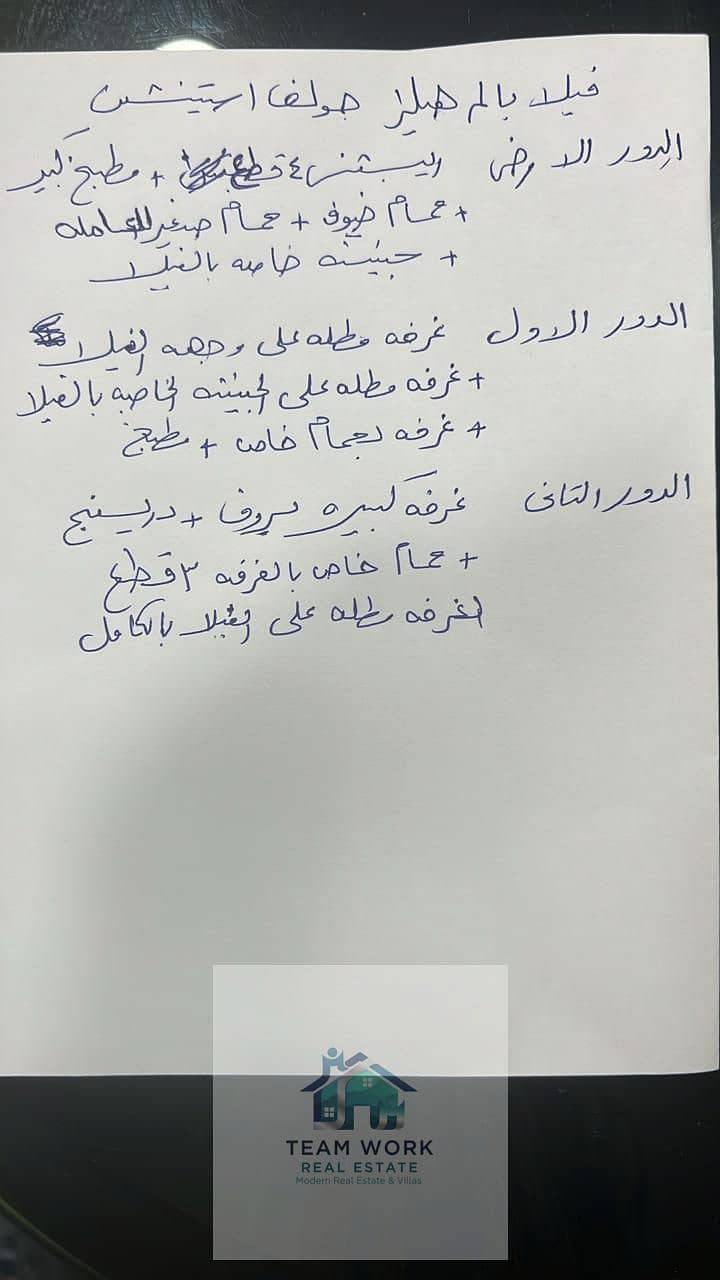 فيلا بالم هيلز جولف استينشن
الدور الارضى اليسبشن ٤ قطع + مطبخ كبير
+ حمام ضيوف + حمام صغير للعامله
+ جنينه خاصه بالفيلا
الدور الاول غرفه مطله على وجهه الفيلا
+ غرفه مطله على الجنينه الخاصه بالفيلا
+ غرفه بحمام خاص + مطبخ
الدور التانى غرفه كبيره بروف + دريسنج
+ حمام خاص بالغرفه ٣ قطع
الغرفه مطله على الفيلا بالكامل
TEAM WORK
REAL ESTATE
Modern Real Estate & Villas